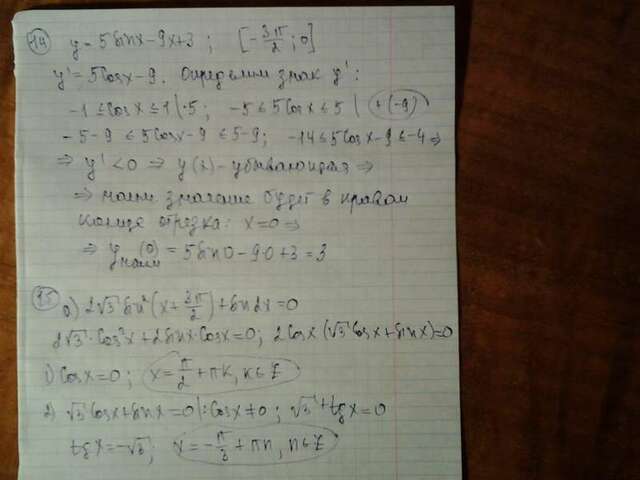 14 y = 5sinx - 9x + 3 ; [-3π/2 ; 0]
y' = 5cosx - 9. Определим знак y' :
-1 ≤ cosx ≤ 1 |·5; -5 ≤ 5cosx ≤ 5 | +(-9)
-5-9 ≤ 5cosx-9 ≤ 5-9; -14 ≤ 5cosx-9 ≤ -4 ⇒
⇒ y' < 0 ⇒ y(x) - убывающая ⇒
⇒ наим значение будет в правом
конце отрезка: x=0 ⇒
⇒ y наим (0) = 5sin0 - 9·0 + 3 = 3
15 а) 2√3 sin²(x + 3π/2) + sin2x = 0
2√3·cos²x + 2sinx·cosx = 0; 2cosx(√3cosx + sinx) = 0
1) cosx = 0; x = π/2 + πk, k∈Z
2) √3cosx + sinx = 0 |:cosx ≠ 0; √3 + tgx = 0
tgx = -√3; x = -π/3 + πn, n∈Z